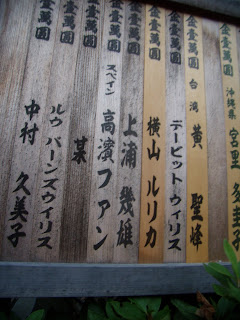 金壹萬圓 沖縄県 宮里 多圭子
金壹萬圓 台湾 黄 聖峰
金壹萬圓 デービット ウィリス
金壹萬圓 横山 ルリカ
金壹萬圓 上浦 幾雄
金壹萬圓 スペイン 高濱 ファン
金壹萬圓 某
金壹萬圓 ルウ バーンズウィリス
金壹萬圓 中村 久美子